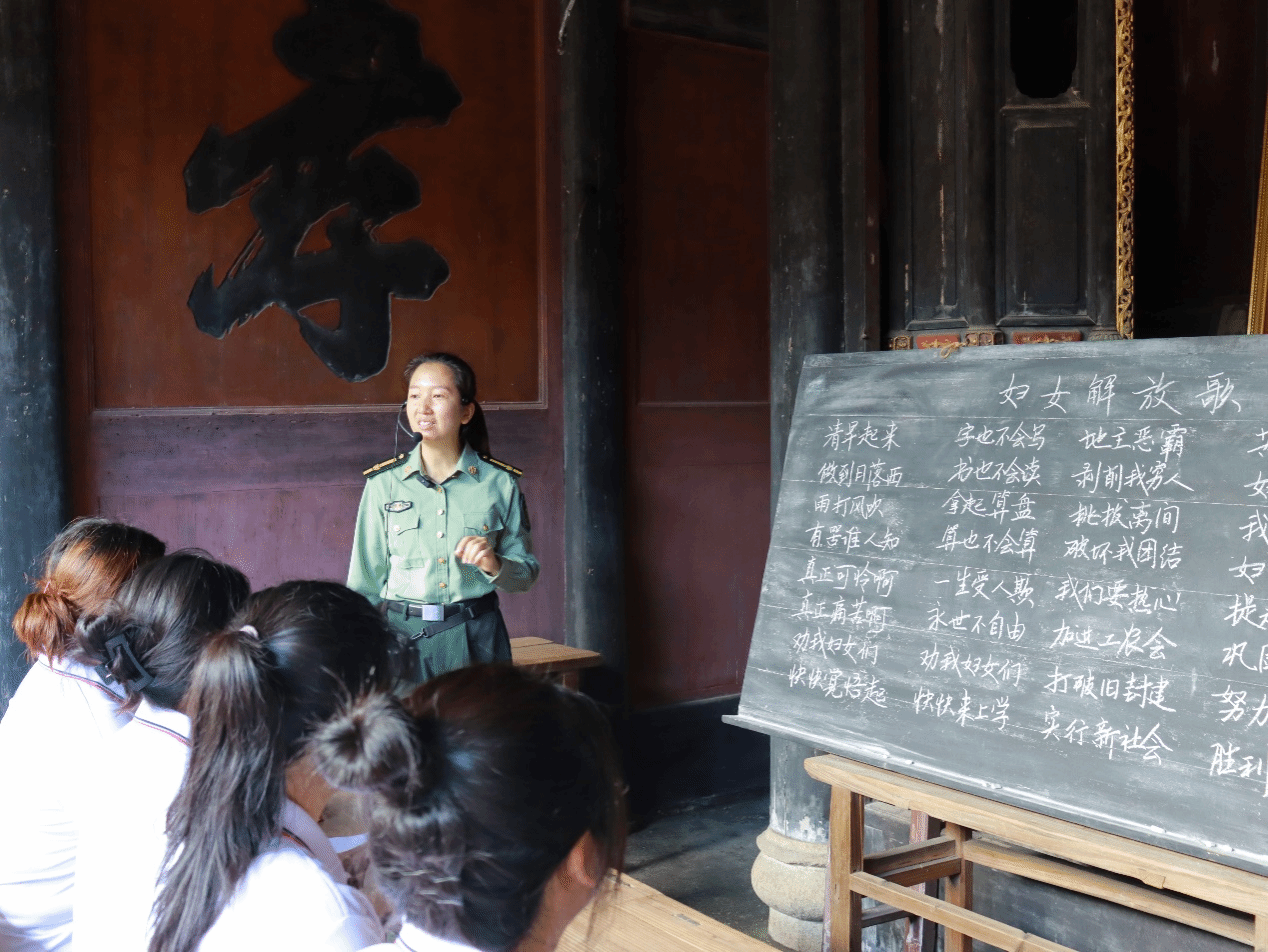 寿
妇女解放歌
清早起来
做到日落西
雨打风吹
有苦谁人知
真正可怜啊
真正痛苦啊
劝我妇女们
快快觉悟起
字也不会写
书也不会读
拿起算盘
算也不会算
一生受人欺
永世不自由
劝我妇女们
快快来上学
地主恶霸
剥削我穷人
挑拨离间
破坏我团结
我们要热心
加进工农会
打破旧封建
实行新社会
我
妇
提
巩
努力
胜利